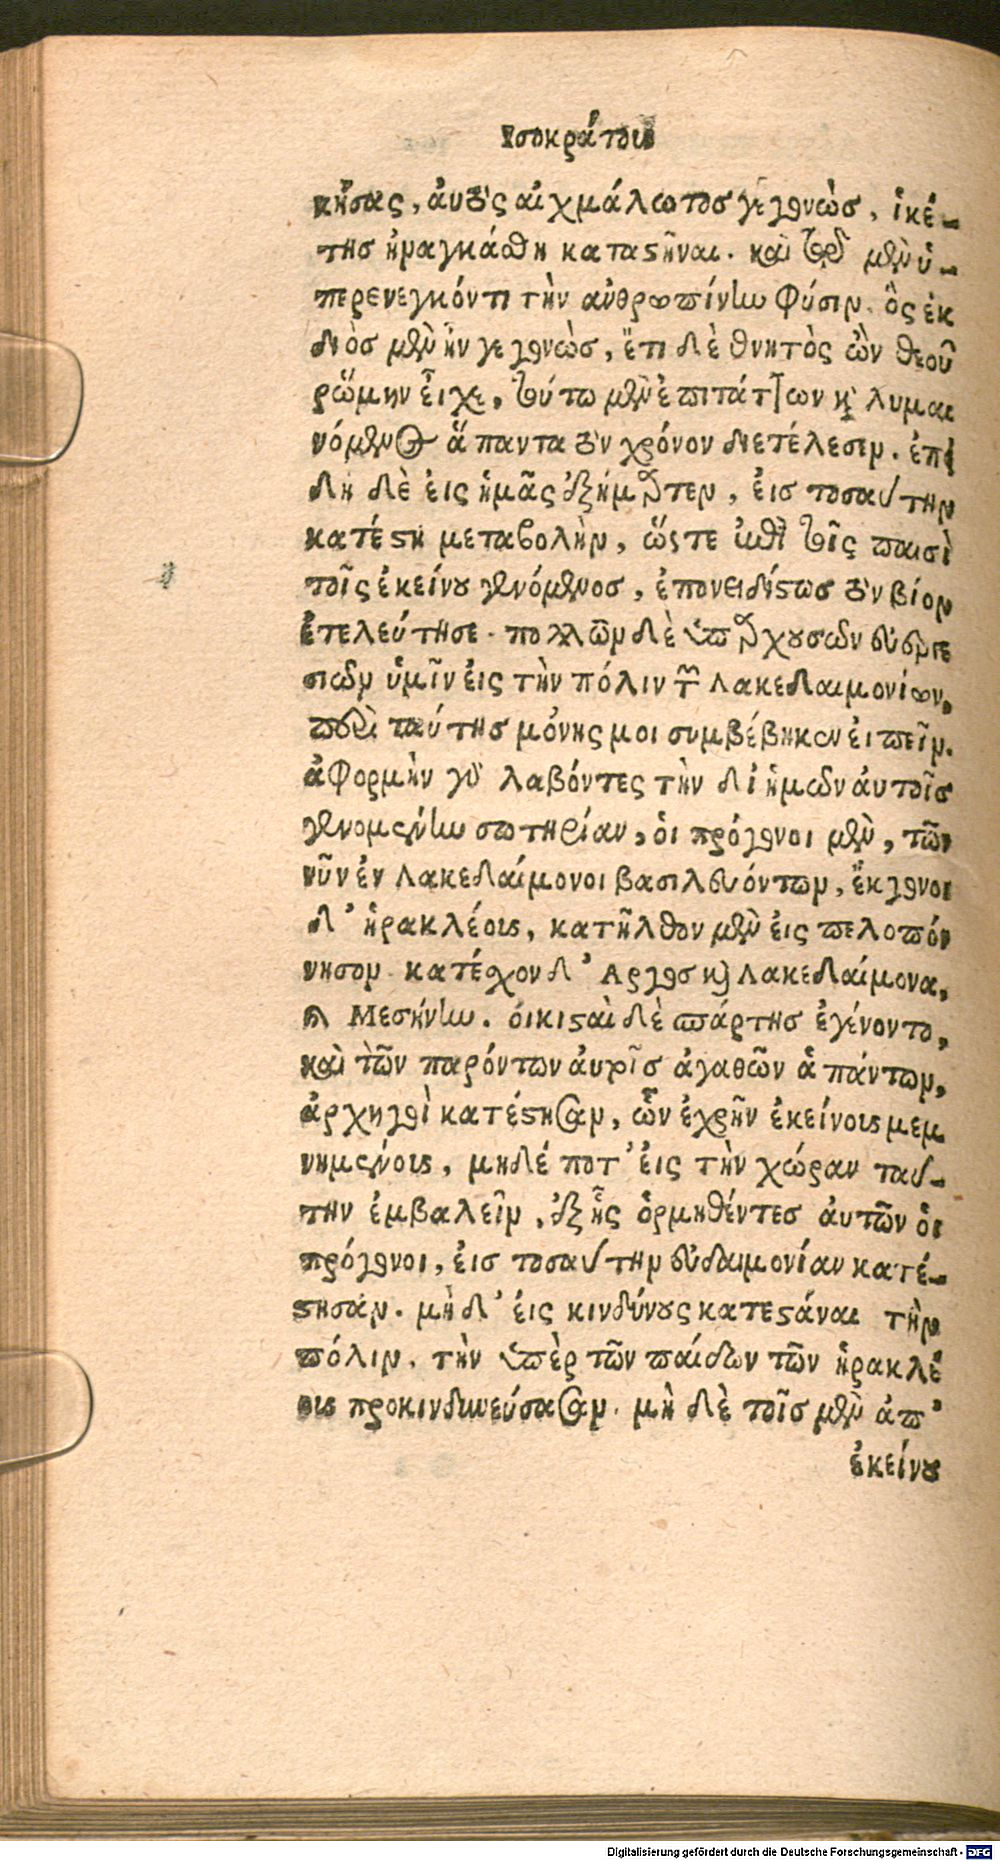 Ισοκράτους
κήσας, ἀυτὸς αἰχμάλωτος γεγονὼς, ἱκέ-
της ἠναγκάσθη καταστῆναι. καὶ τῷ μὲν ὑ-
περενεγκόντι τὴν ἀνθρωπίνην φύσιν. ὃς ἐκ
διὸς μὲν ἦν γεγονὼς, ἔτι δὲ θνητὸς ὢν θεοῦ
ῥώμην εἶχε, τούτω μὲν ἐπιτάττων καὶ λυμαι
νόμενος ἅπαντα τὸν χρόνον διετέλεσεν. ἐπει
δὴ δὲ ἐις ἡμᾶς ἐξήμαρτεν, ἐις τοσαύτην
κατέστη μεταβολὴν, ὥστε ἐπὶ τοῖς παισὶ
τοῖς ἐκείνου γενόμενος, ἐπονειδίστως τὸν βίον
ἐτελεύτησε. πολλῶν δὲ ὑπαρχουσῶν εὐεργε
σιῶν ὑμῖν ἐις τὴν πόλιν τῶν Λακεδαιμονίων,
περὶ ταύτης μόνης μοι συμβέβηκεν ἐιπεῖν.
ἀφορμὴν γὰρ λαβόντες τὴν δι ἡμῶν ἀυτοῖς
γενομένην σωτηρίαν, ὁι πρόγονοι μὲν, τῶν
νῦν ἐν Λακεδαίμονοι βασιλευόντων, ἔκγονοι
δ' ἡρακλέους, κατῆλθον μὲν ἐις πελοπόν
νησον. κατέσχον δ' Αργος καὶ Λακεδαίμονα,
καὶ Μεσήνην. ὀικισταὶ δὲ σπάρτης ἐγένοντο,
καὶ τῶν παρόντων ἀυτοῖς ἀγαθῶν ἁπάντων,
ἀρχηγοὶ κατέστησαν, ὧν ἐχρῆν ἐκείνους μεμ
νημένους, μηδέ ποτ' ἐις τὴν χώραν ταύ-
την ἐμβαλεῖν, ἐξ ἧς ὁρμηθέντες ἀυτῶν ὁι
πρόγονοι, ἐις τοσαύτην εὐδαιμονίαν κατέ-
στησαν. μὴ δ' ἐις κινδύνους κατεστάναι τὴν
πόλιν, τὴν ὑπὲρ τῶν παίδων τῶν ἡρακλέ
ους προκινδυνεύσασαν. μὴ δὲ τοῖς μὲν ἀπ'
ἐκείνου
Digitalisierung gefördert durch die Deutsche Forschungsgemeinschaft - DFG